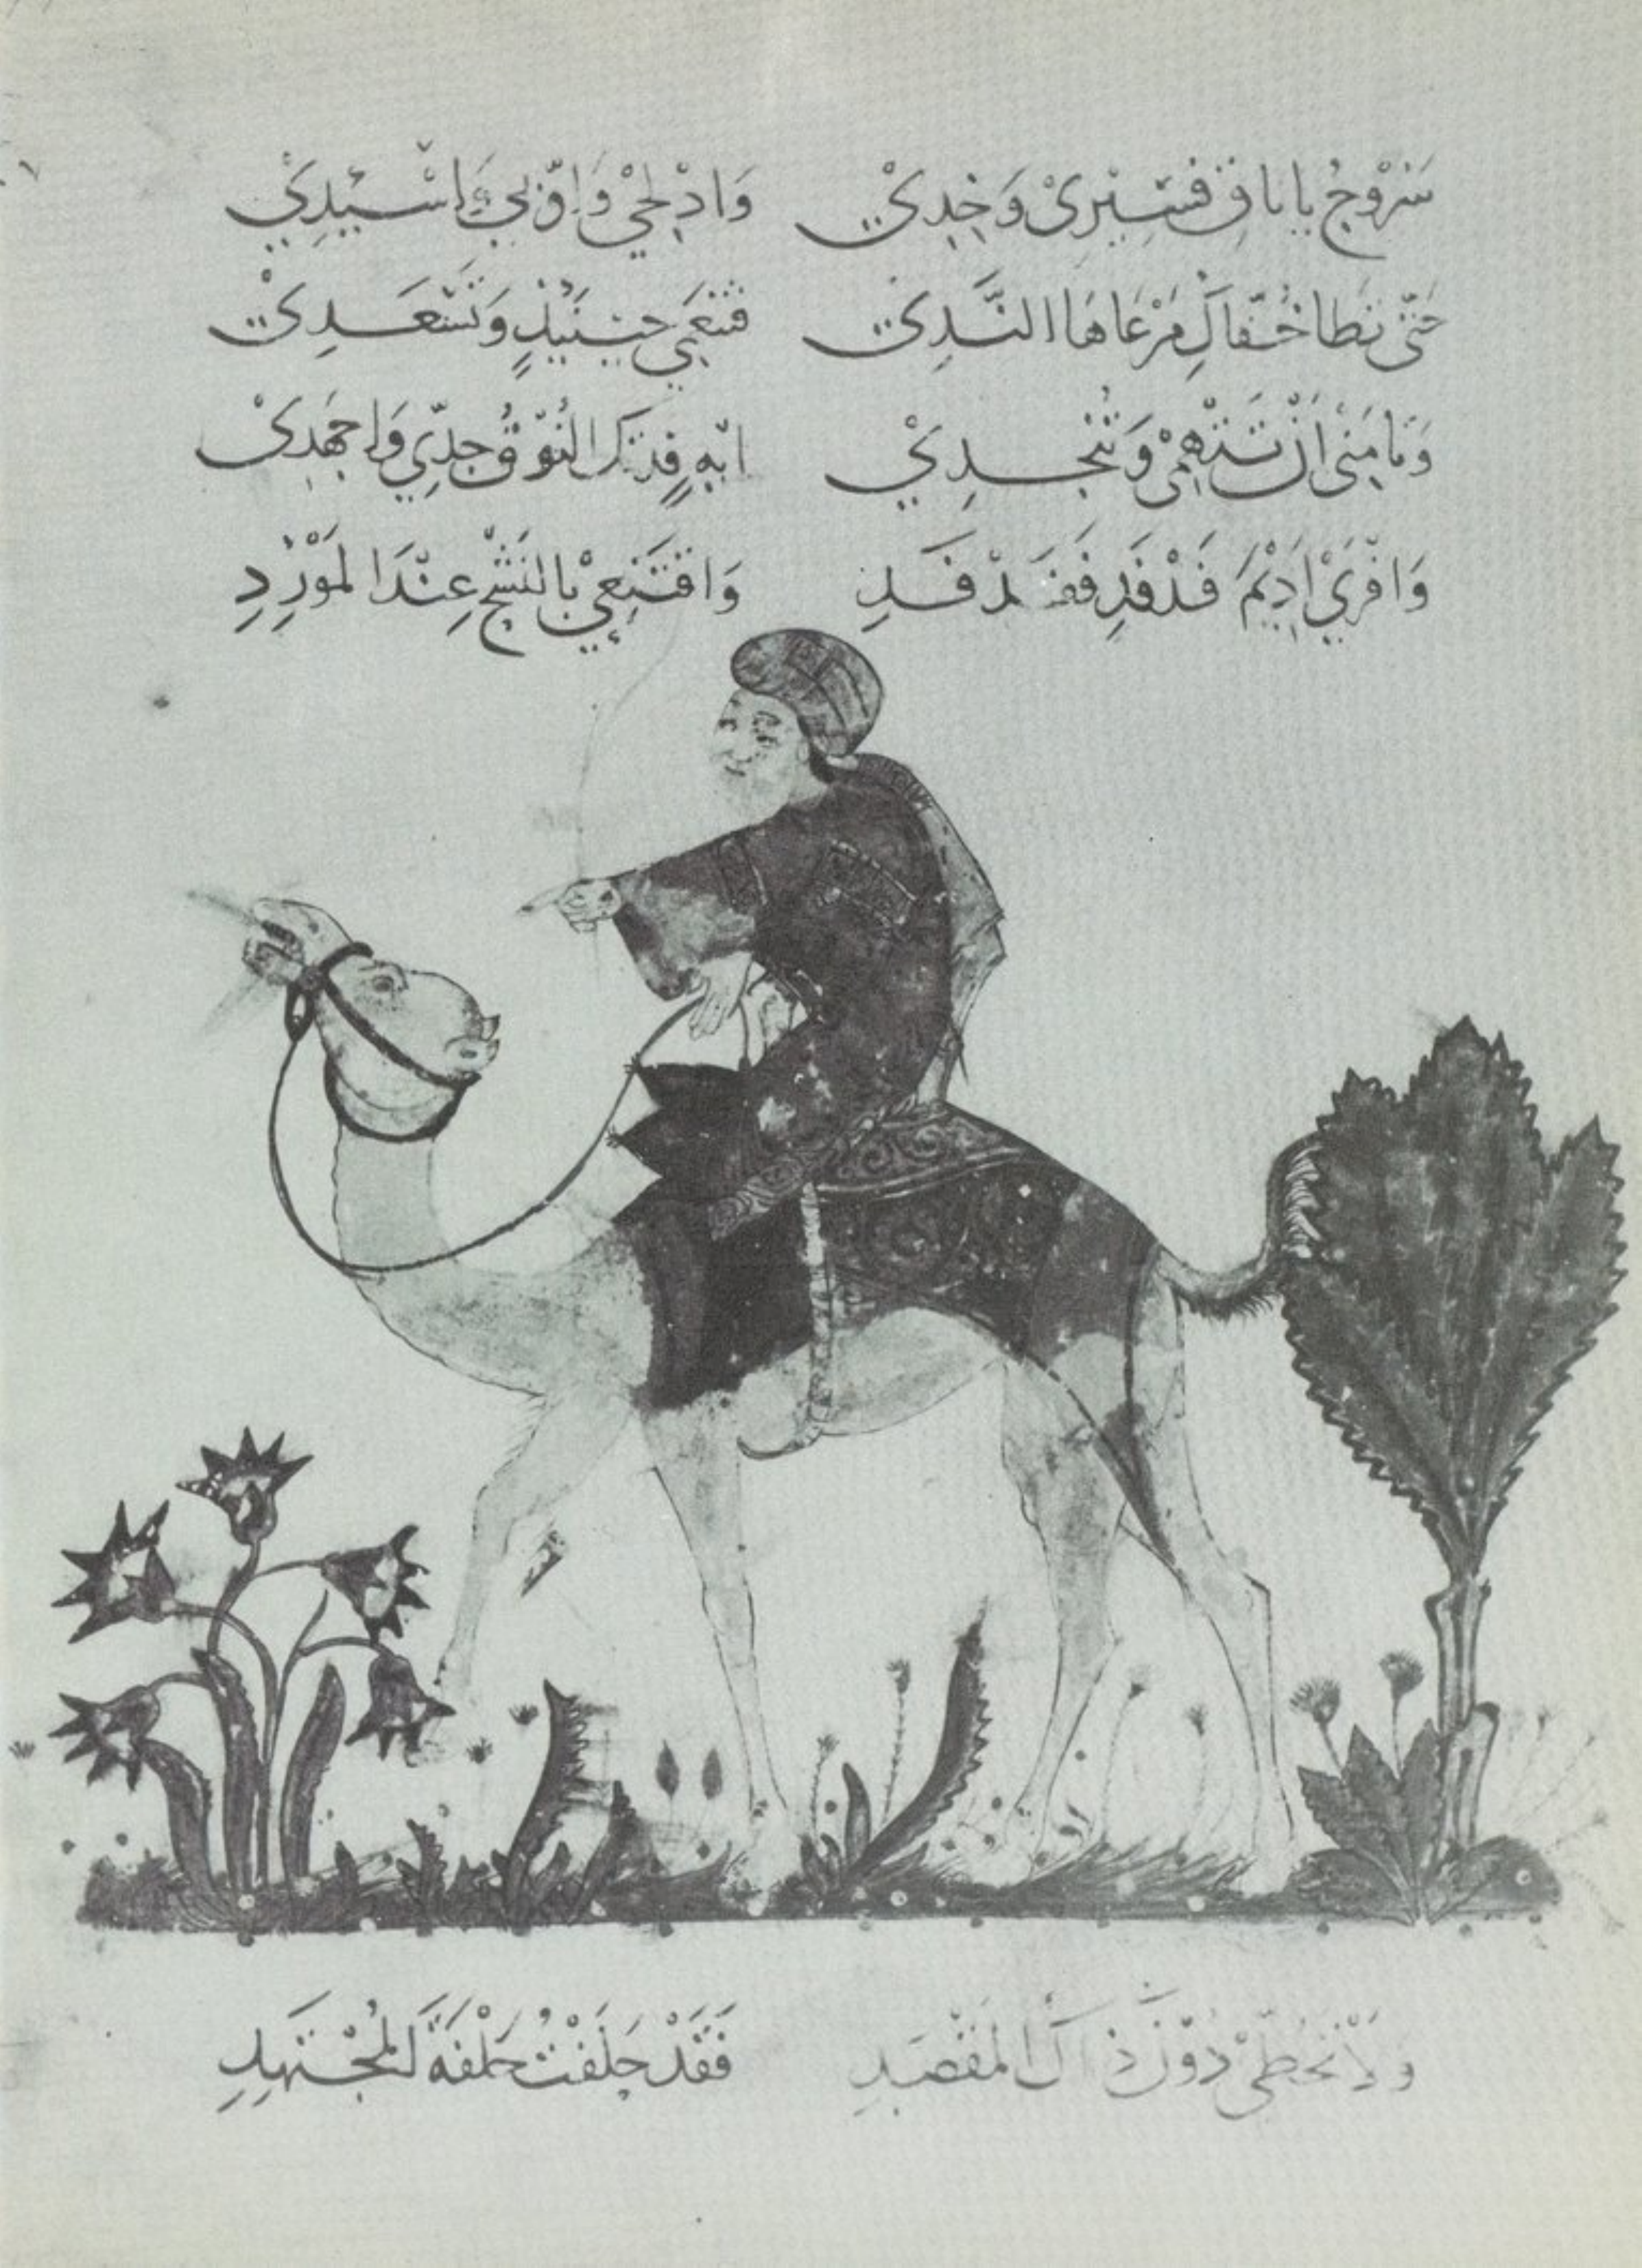 سَرُوْجُ يا نَاقِ فَسِيْرِىْ وَخِدِىْ وَادْلِجِيْ وَاَوِّبِيْ وَاَسْئِدِيْ
حَتّى تَطَا خُفَّاكِ مَرْعَاهَا النَّدِىْ فَتَنْعَمِي حِيْنَئِذٍ وَتَسْعَدِىْ
وَتَامَنِىْ اَنْ تُتْهِمِىْ وَتُنْجِدِيْ اِيْهٍ فَدَتْكِ النُّوْقُ جِدِّي وَاجْهَدِىْ
وَافْرَيْ اَدِيْمَ فَدْفَدٍ فَفَدْفَدِ وَاقْتَنِعِيْ بِالنَشْحِ عِنْدَ المَوْرِدِ
وَلَا تَحُطِّىْ دُوْنَ ذَاكَ المَقْصِدِ فَقَدْ حَلَفْتُ حَلْفَةَ المُجْتَهِدِ